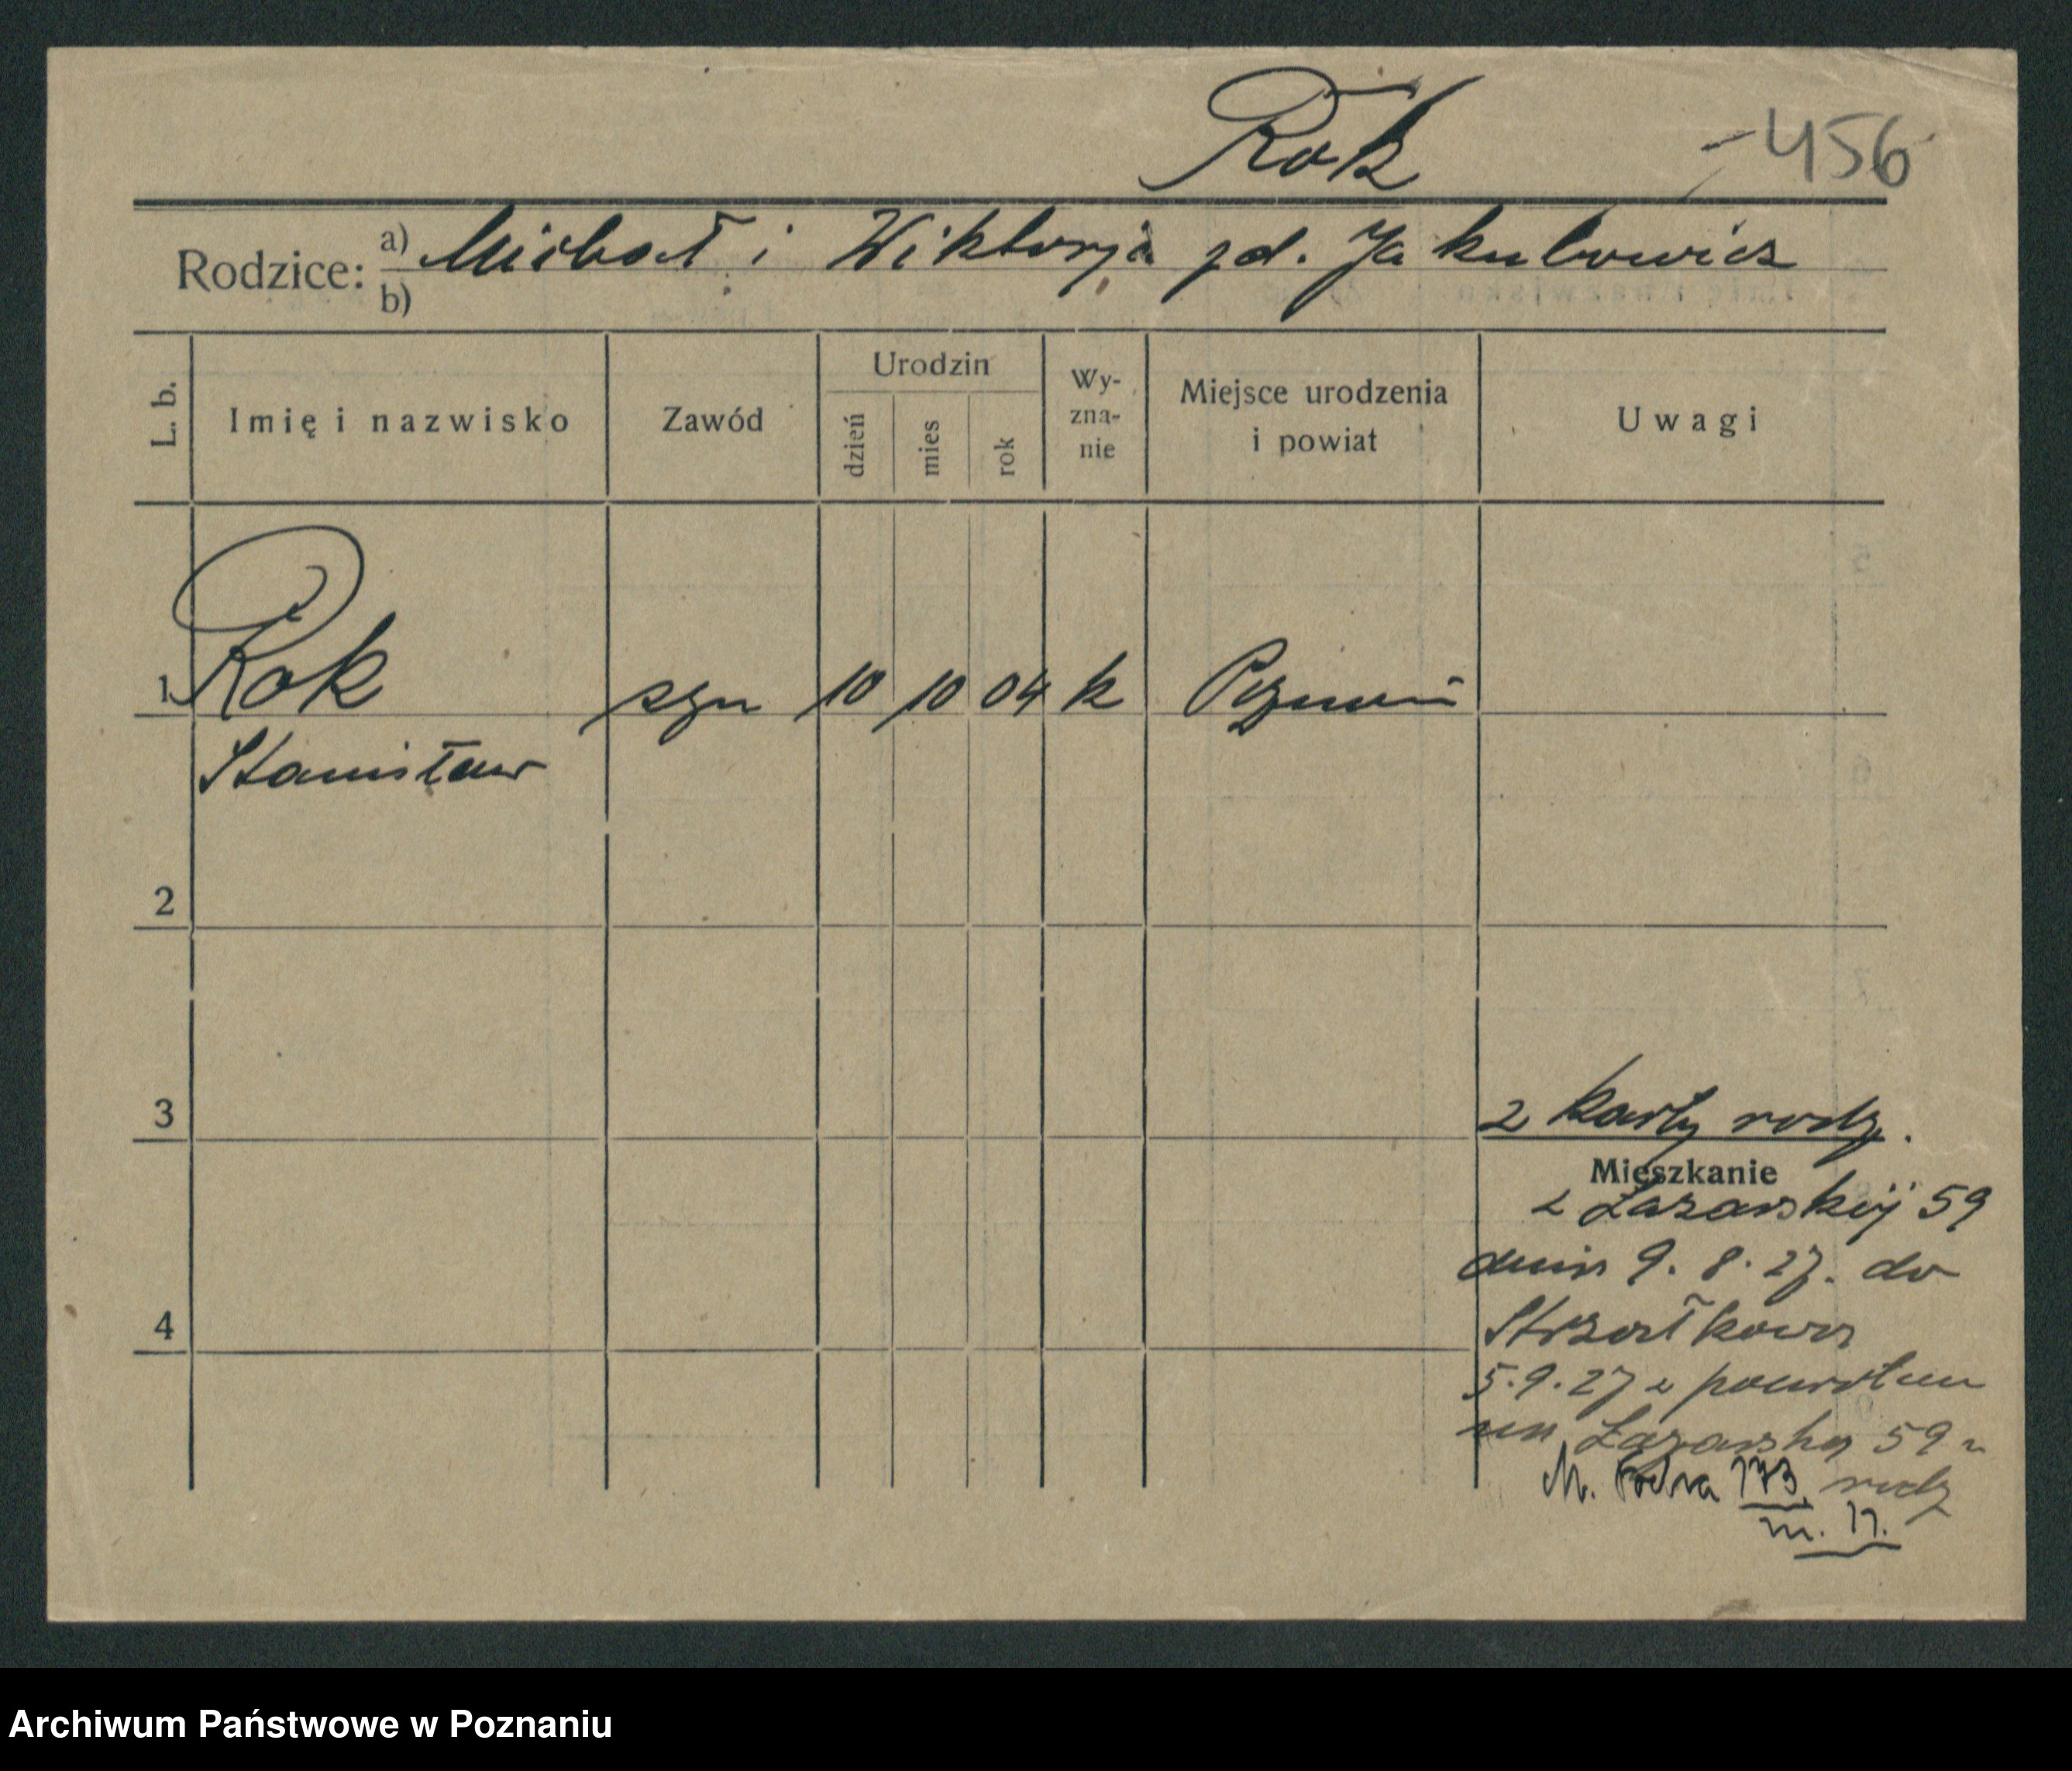 Rok
-456
Rodzice: a) Michał i Wiktorja zd. Jakubowicz
b)
L. b.
Imię i nazwisko
Zawód
Urodzin
dzień
mies
rok
Wy-
zna-
nie
Miejsce urodzenia
i powiat
Uwagi
1 Rok syn 10 10 04 k Poznań
Stanisław
2
3
2 karty rodz.
Mieszkanie
z Łazarskiej 59
dnia 9. 8. 27. do
4
Strzałkowa
5.9.27 z powrotem
na Łazarską 59 u
rodz
M. 173
m. 11.
Archiwum Państwowe w Poznaniu